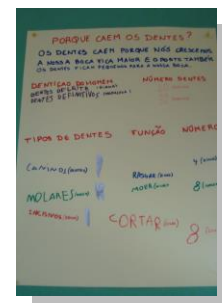 PORQUE CAEM OS DENTES?
OS DENTES CAEM PORQUE NÓS CRESCEMOS
A NOSSA BOCA FICA MAIOR E O ROSTO TAMBÉM
OS DENTES FICAM PEQUENOS PARA A NOSSA BOCA.
DENTIÇÃO DO HOMEM NÚMERO DENTES
DENTES DE LEITE
DENTES DEFINITIVOS
TIPOS DE DENTES FUNÇÃO NÚMERO
CANINOS RASGAR 4
MOLARES MOER 8
INCISIVOS CORTAR 8